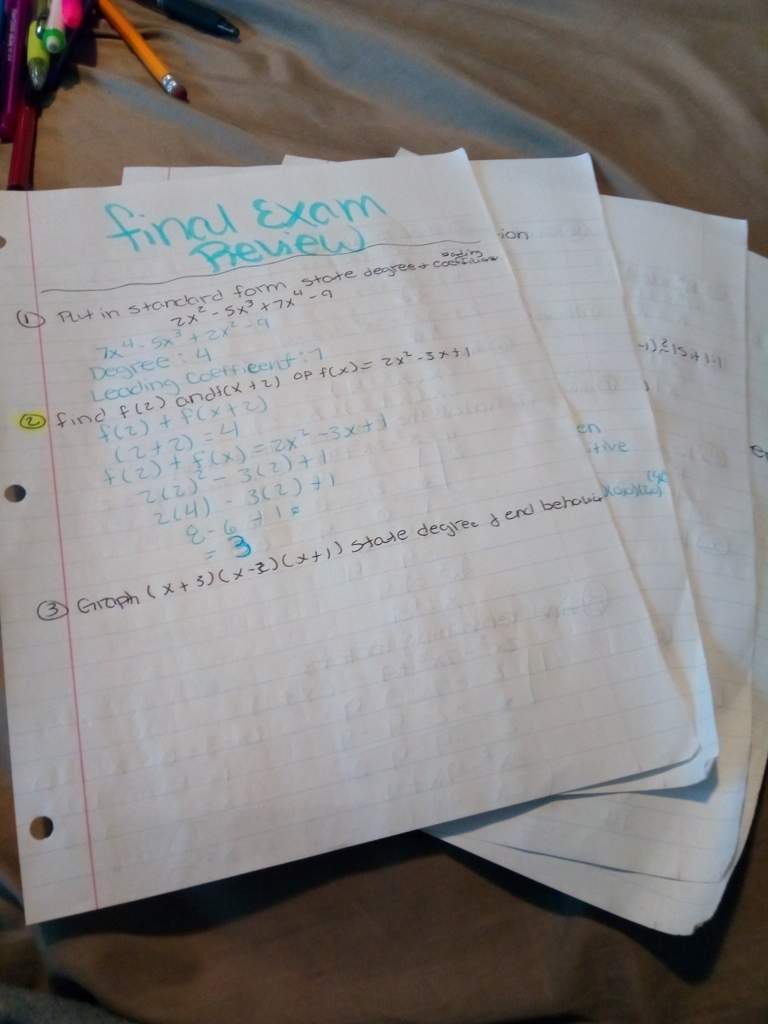 Final Exam
Review
① Put in standard form, state degree + leading coefficient
2x² - 5x³ + 7x⁴ - 9
7x⁴ - 5x³ + 2x² - 9
Degree: 4
Leading Coefficient: 7
② find f(2) and f(x+2) of f(x) = 2x² - 3x + 1
f(2) + f(x+2)
(2+2) = 4
f(2) + f(x) = 2x² - 3x + 1
2(2)² - 3(2) + 1
2(4) - 3(2) + 1
8 - 6 + 1 =
= 3
③ Graph (x+3)(x-2)(x+1) state degree & end behavior
ion
en
tive